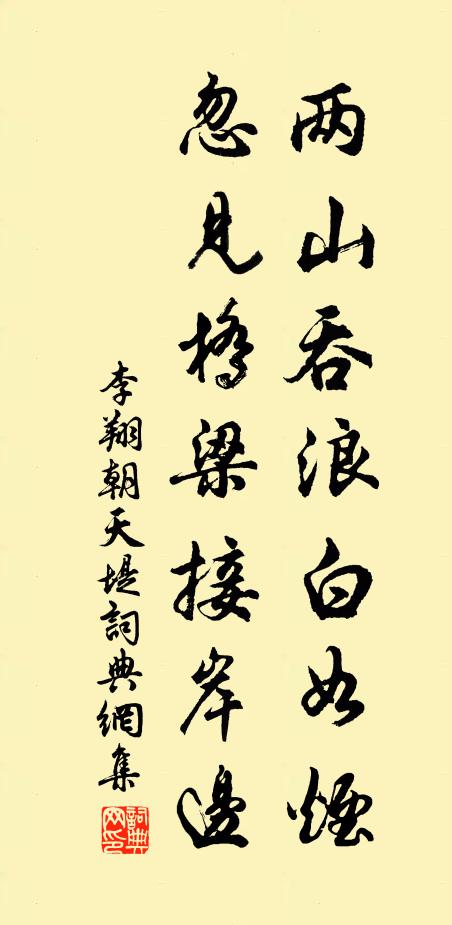 两山吞浪白如煙
忽見橋梁接岸邊
李翔朝天堤詞典網集
詞典網印